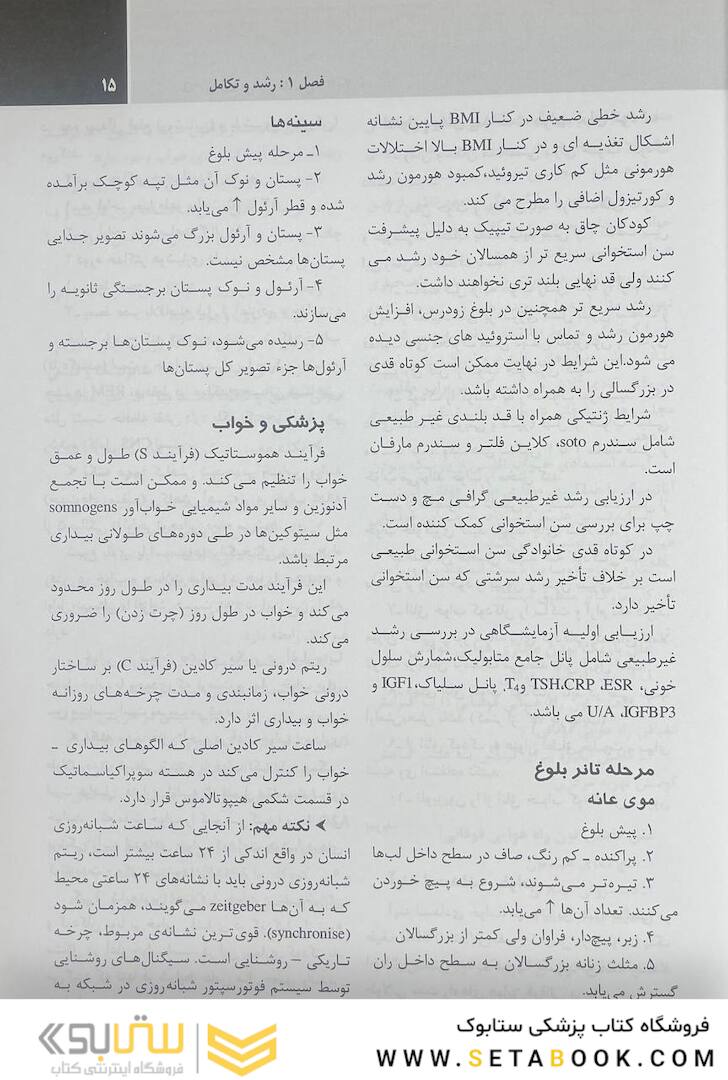 فصل ۱ : رشد و تکامل
۱۵
رشد خطی ضعیف در کنار BMI پایین نشانه
اشکال تغذیه ای و در کنار BMI بالا اختلالات
هورمونی مثل کم کاری تیروئید،کمبود هورمون رشد
و کورتیزول اضافی را مطرح می کند.
کودکان چاق به صورت تیپیک به دلیل پیشرفت
سن استخوانی سریع تر از همسالان خود رشد می
کنند ولی قد نهایی بلند تری نخواهند داشت.
رشد سریع تر همچنین در بلوغ زودرس، افزایش
هورمون رشد و تماس با استروئید های جنسی دیده
می شود.این شرایط در نهایت ممکن است کوتاه قدی
در بزرگسالی را به همراه داشته باشد.
شرایط ژنتیکی همراه با قد بلندی غیر طبیعی
شامل سندرم soto، کلاین فلتر و سندرم مارفان
است.
در ارزیابی رشد غیرطبیعی گرافی مچ و دست
چپ برای بررسی سن استخوانی کمک کننده است.
در کوتاه قدی خانوادگی سن استخوانی طبیعی
است بر خلاف تأخیر رشد سرشتی که سن استخوانی
تأخیر دارد.
ارزیابی اولیه آزمایشگاهی در بررسی رشد
غیرطبیعی شامل پانل جامع متابولیک،شمارش سلول
خونی، TSH،CRP ،ESR وT₄، پانل سلیاک،IGF1 و
U/A ،IGFBP3 می باشد.
مرحله تانر بلوغ
موی عانه
۱. پیش بلوغ
۲. پراکنده ـ کم رنگ، صاف در سطح داخل لب‌ها
۳. تیره‌تر می‌شوند، شروع به پیچ خوردن
می‌کنند. تعداد آن‌ها ↑ می‌یابد.
۴. زبر، پیچ‌دار، فراوان ولی کمتر از بزرگسالان
۵. مثلث زنانه بزرگسالان به سطح داخل ران
گسترش می‌یابد.
سینه‌ها
۱ـ مرحله پیش بلوغ
۲- پستان و نوک آن مثل تپه کوچک برآمده
شده و قطر آرئول ↑ می‌یابد.
۳- پستان و آرئول بزرگ می‌شوند تصویر جدایی
پستان‌ها مشخص نیست.
۴- آرئول و نوک پستان برجستگی ثانویه را
می‌سازند.
۵- رسیده می‌شود، نوک پستان‌ها برجسته و
آرئول‌ها جزء تصویر کل پستان‌ها
پزشکی و خواب
فرآیند هموستاتیک (فرآیند S) طول و عمق
خواب را تنظیم می‌کند. و ممکن است با تجمع
آدنوزین و سایر مواد شیمیایی خواب‌آور somnogens
مثل سیتوکین‌ها در طی دوره‌های طولانی بیداری
مرتبط باشد.
این فرآیند مدت بیداری را در طول روز محدود
می‌کند و خواب در طول روز (چرت زدن) را ضروری
می‌کند.
ریتم درونی یا سیر کادین (فرآیند C) بر ساختار
درونی خواب، زمانبندی و مدت چرخه‌های روزانه
خواب و بیداری اثر دارد.
ساعت سیر کادین اصلی که الگوهای بیداری ـ
خواب را کنترل می‌کند در هسته سوپراکیاسماتیک
در قسمت شکمی هیپوتالاموس قرار دارد.
➤ نکته مهم: از آنجایی که ساعت شبانه‌روزی
انسان در واقع اندکی از ۲۴ ساعت بیشتر است، ریتم
شبانه‌روزی درونی باید با نشانه‌های ۲۴ ساعتی محیط
که به آن‌ها zeitgeber می‌گویند، همزمان شود
(synchronise). قوی‌ترین نشانه‌ی مربوط، چرخه
تاریکی – روشنایی است. سیگنال‌های روشنایی
توسط سیستم فوتورسپتور شبانه‌روزی در شبکه به
فروشگاه کتاب پزشکی ستابوک
WWW.SETABOOK.COM
ستابوک
فروشگاه اینترنتی کتاب